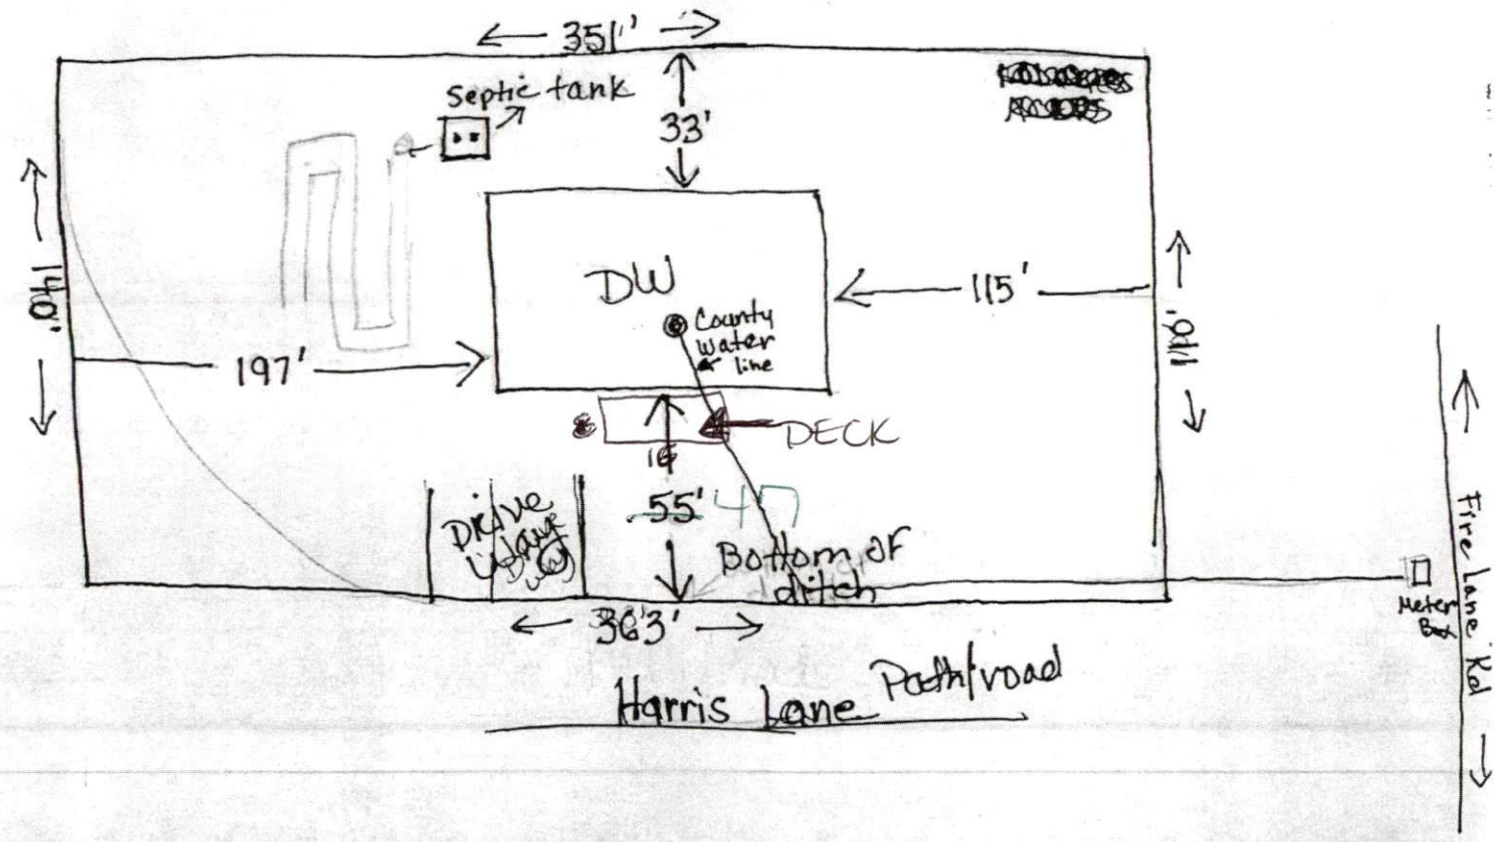 351'
septic tank
33'
140'
DW
County
water
line
115'
140'
197'
8
DECK
16
55' 47
Drive
way
Bottom of
ditch
363'
Meter
Box
Fire Lane Rd
Harris Lane Path/road